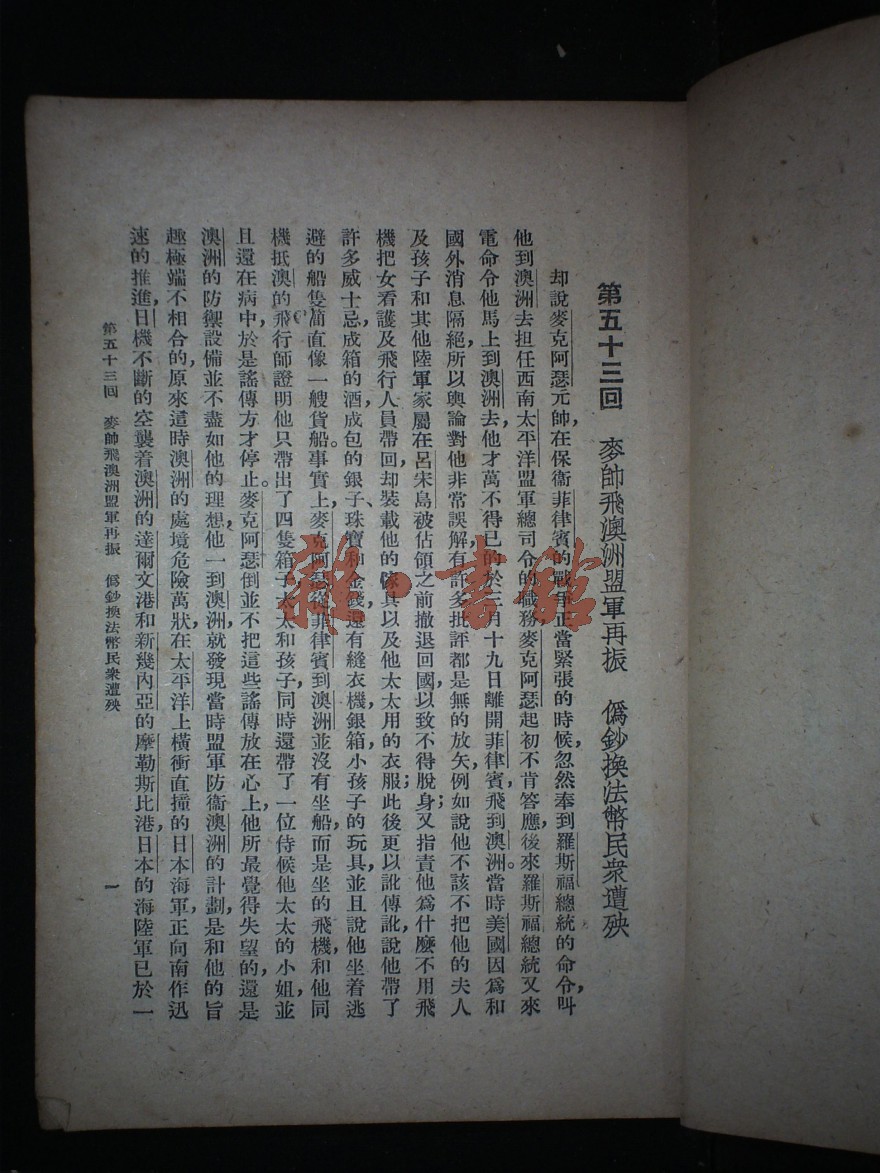 第五十三回　麥帥飛澳洲盟軍再振　僞鈔換法幣民衆遭殃
却說麥克阿瑟元帥，在保衞菲律賓的戰爭正當緊張的時候，忽然奉到羅斯福總統的命令，叫
他到澳洲去担任西南太平洋盟軍總司令的職務，麥克阿瑟起初不肯答應，後來羅斯福總統又來
電命令他馬上到澳洲去，他才萬不得已的於三月十九日離開菲律賓，飛到澳洲。當時美國因爲和
國外消息隔絕，所以輿論對他非常誤解，有許多批評都是無的放矢，例如說他不該不把他的夫人
及孩子和其他陸軍家屬在呂宋島被佔領之前撤退回國，以致不得脫身；又指責他爲什麼不用飛
機把女看護及飛行人員帶回，却裝載他的傢具以及他太太用的衣服；此後更以訛傳訛，說他帶了
許多威士忌，成箱的酒，成包的銀子、珠寶和金錢，還有縫衣機，銀箱，小孩子的玩具，並且說他坐着逃
避的船隻，簡直像一艘貨船。事實上，麥克阿瑟從菲律賓到澳洲並沒有坐船，而是坐的飛機，和他同
機抵澳的飛行師證明他只帶出了四隻箱子，太太和孩子，同時還帶了一位侍候他太太的小姐，並
且還在病中，於是謠傳方才停止。麥克阿瑟倒並不把這些謠傳放在心上，他所最覺得失望的，還是
澳洲的防禦設備並不盡如他的理想，他一到澳洲，就發現當時盟軍防衞澳洲的計劃，是和他的旨
趣極端不相合的，原來這時澳洲的處境危險萬狀，在太平洋上橫衝直撞的日本海軍，正向南作迅
速的推進，日機不斷的空襲着澳洲的達爾文港和新幾內亞的摩勒斯比港，日本的海陸軍已於一
第五十三回　麥帥飛澳洲盟軍再振　僞鈔換法幣民衆遭殃　一
雜·書館